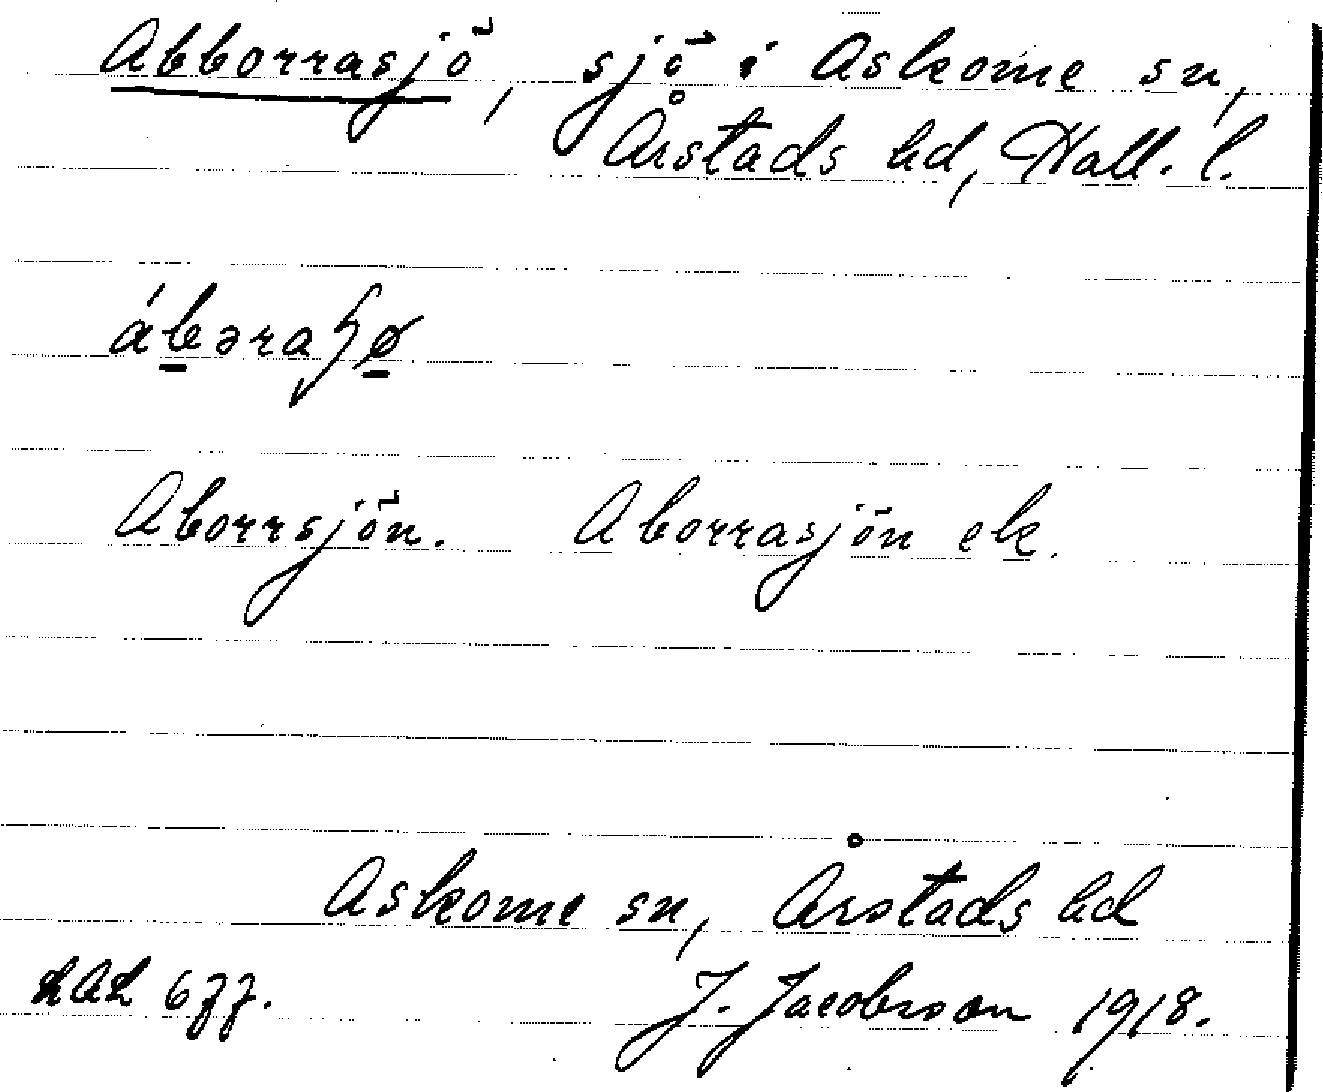 Abborrasjö, sjö i Askome sn,
Årstads hd, Hall. l.
Aborrsjön. Aborrasjön ek.
Askome sn, Årstads hd
J. Jacobsson 1918.